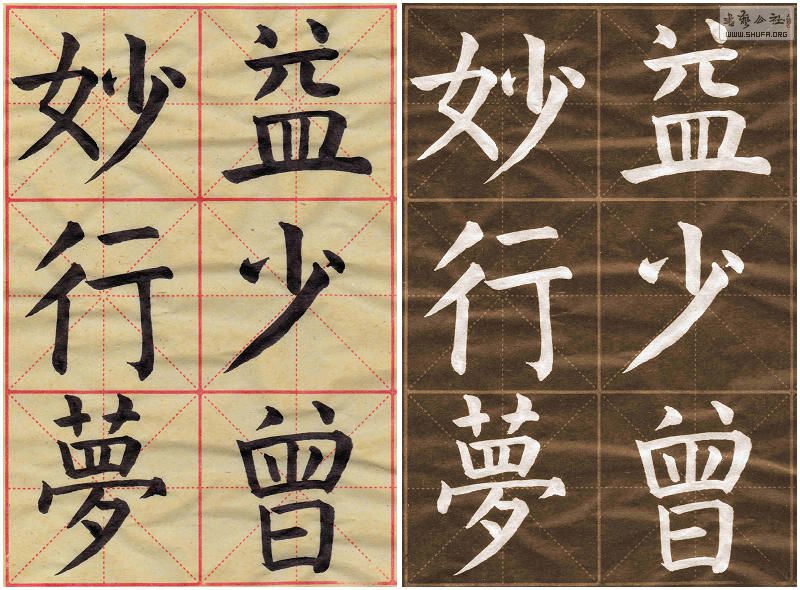 益少曾
妙行夢
益少曾
妙行夢
書藝公社
WWW.SHUFA.ORG